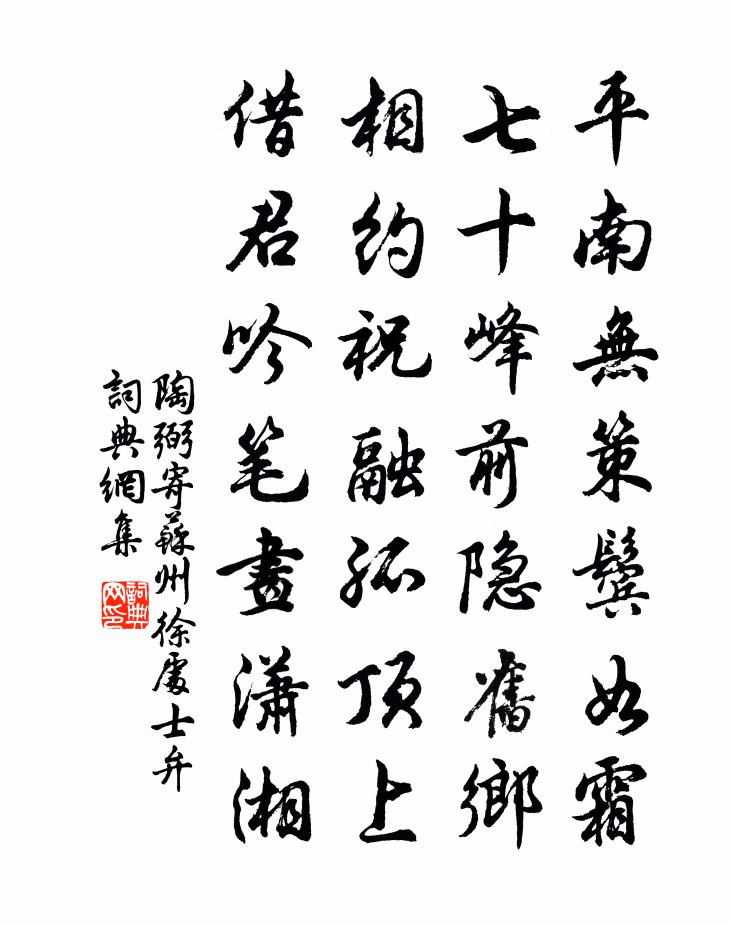 平南無策鬓如霜
七十峰前隐舊鄉
相約祝融孤顶上
借君吟笔畫潇湘
陶弼寄蘇州徐處士弁
詞典網集
詞典网印